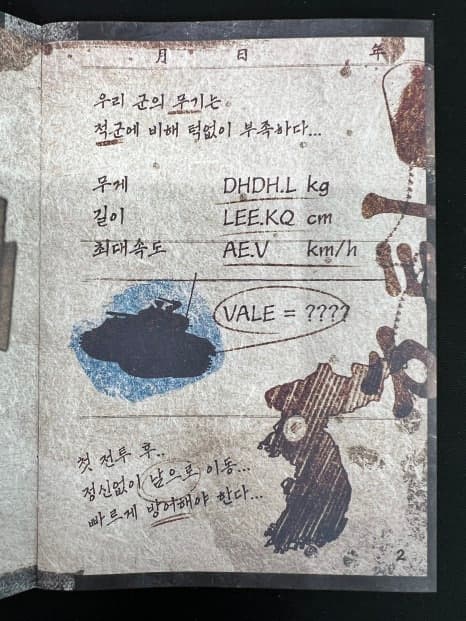 月 日 年
우리 군의 무기는
적군에 비해 턱없이 부족하다...
무게 DHDH.L kg
길이 LEE.KQ cm
최대속도 AE.V km/h
VALE = ????
첫 전투 후..
정신없이 남으로 이동...
빠르게 방어해야 한다...
2